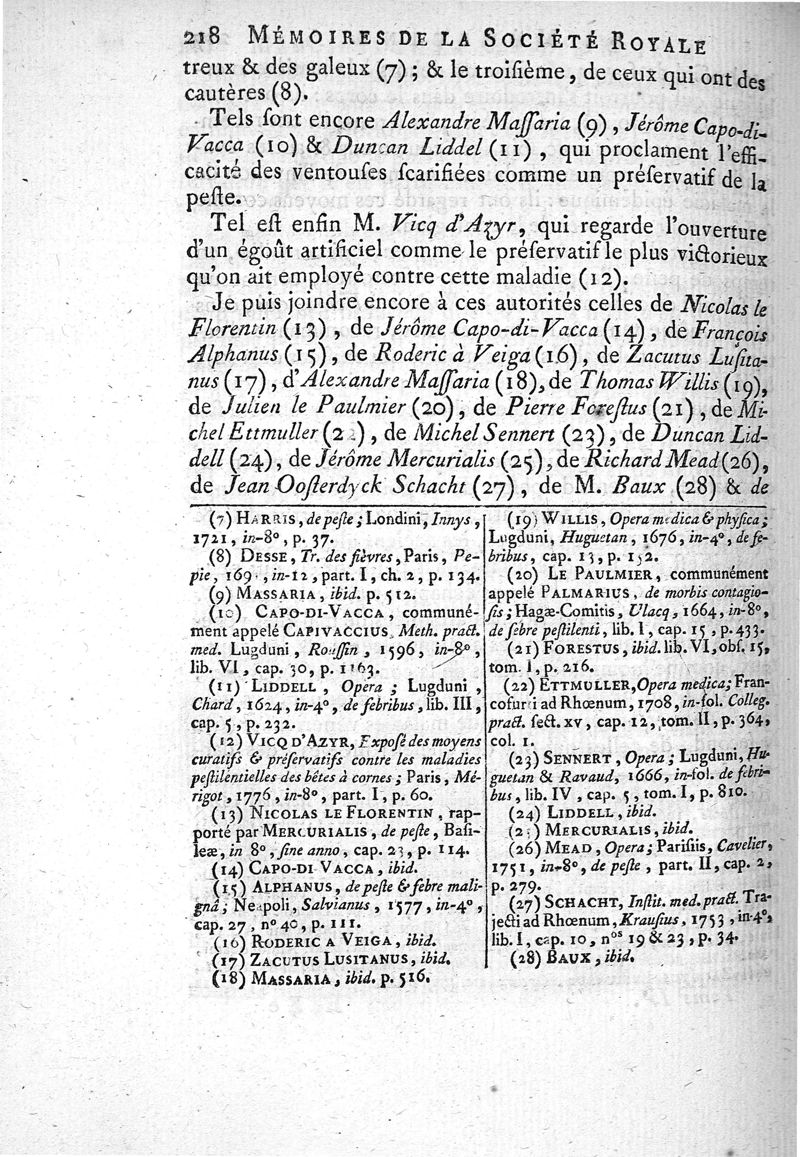 218 MÉMOIRES DE LA SOCIÉTÉ ROYALE
treux & des galeux (7) ; & le troiſième, de ceux qui ont des
cautères (8).
Tels ſont encore Alexandre Maſſaria (9), Jérôme Capo-di-
Vacca (10) & Duncan Liddel (11), qui proclament l'effi-
cacité des ventouſes ſcarifiées comme un préſervatif de la
peſte.
Tel eſt enfin M. Vicq d'Azyr, qui regarde l'ouverture
d'un égoût artificiel comme le préſervatif le plus victorieux
qu'on ait employé contre cette maladie (12).
Je puis joindre encore à ces autorités celles de Nicolas le
Florentin (13), de Jérôme Capo-di-Vacca (14), de François
Alphanus (15), de Roderic à Veiga (16), de Zacutus Luſita-
nus (17), d'Alexandre Maſſaria (18), de Thomas Willis (19),
de Julien le Paulmier (20), de Pierre Foreſtus (21), de Mi-
chel Ettmuller (22), de Michel Sennert (23), de Duncan Lid-
dell (24), de Jérôme Mercurialis (25), de Richard Mead (26),
de Jean Ooſterdyck Schacht (27), de M. Baux (28) & de
(7) HARRIS, de peſte ; Londini, Innys,
1721, in-8°, p. 37.
(8) DESSE, Tr. des fièvres, Paris, Pe-
pie, 169 , in-12, part. I, ch. 2, p. 134.
(9) MASSARIA, ibid. p. 512.
(10) CAPO-DI-VACCA, communé-
ment appelé CAPIVACCIUS, Meth. pract.
med. Lugduni, Rouſſin, 1596, in-8°,
lib. VI, cap. 30, p. 1163.
(11) LIDDELL, Opera ; Lugduni,
Chard, 1624, in-4°, de febribus, lib. III,
cap. 5, p. 232.
(12) VICQ D'AZYR, Expoſé des moyens
curatifs & préſervatifs contre les maladies
peſtilentielles des bêtes à cornes ; Paris, Mé-
rigot, 1776, in-8°, part. I, p. 60.
(13) NICOLAS LE FLORENTIN, rap-
porté par MERCURIALIS, de peſte, Baſi-
leæ, in 8°, ſine anno, cap. 23, p. 114.
(14) CAPO-DI VACCA, ibid.
(15) ALPHANUS, de peſte & febre mali-
gnâ ; Neapoli, Salvianus, 1577, in-4°,
cap. 27, n° 40, p. 111.
(16) RODERIC A VEIGA, ibid.
(17) ZACUTUS LUSITANUS, ibid.
(18) MASSARIA, ibid. p. 516.
(19) WILLIS, Opera medica & phyſica ;
Lugduni, Huguetan, 1676, in-4°, de fe-
bribus, cap. 13, p. 152.
(20) LE PAULMIER, communément
appelé PALMARIUS, de morbis contagio-
ſis ; Hagæ-Comitis, Ulacq, 1664, in-8°,
de febre peſtilenti, lib. I, cap. 15, p. 433.
(21) FORESTUS, ibid. lib. VI, obſ. 15,
tom. I, p. 216.
(22) ETTMULLER, Opera medica ; Fran-
cofurti ad Rhœnum, 1708, in-fol. Colleg.
pract. ſect. XV, cap. 12, tom. II, p. 364,
col. 1.
(23) SENNERT, Opera ; Lugduni, Hu-
guetan & Ravaud, 1666, in-fol. de febri-
bus, lib. IV, cap. 5, tom. I, p. 810.
(24) LIDDELL, ibid.
(25) MERCURIALIS, ibid.
(26) MEAD, Opera ; Pariſiis, Cavelier,
1751, in-8°, de peſte, part. II, cap. 2,
p. 279.
(27) SCHACHT, Inſtit. med. pract. Tra-
jecti ad Rhœnum, Krauſius, 1753, in-4°,
lib. I, cap. 10, nos 19 & 23, p. 34.
(28) BAUX, ibid.